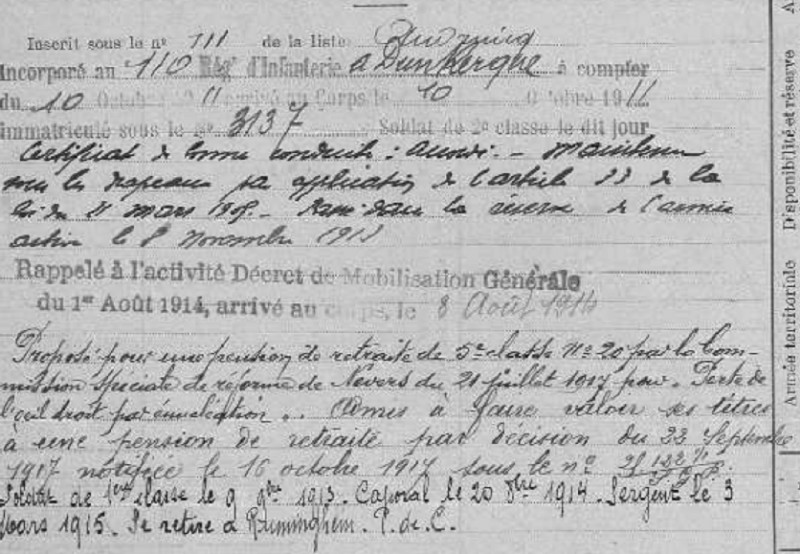 Inscrit sous le n° 111 de la liste
Incorporé au 110 Rég' d'Infanterie à Dunkerque à compter
du 10 Octobre 1911 arrivé au Corps le 10 Octobre 1911
immatriculé sous le n° 3137 Soldat de 2e classe le dit jour
Certificat de bonne conduite : accordé. - Maintenu
sous les drapeaux par application de l'article 33 de la
loi du 21 mars 1905. - Passé dans la réserve de l'armée
active le 8 Novembre 1913
Rappelé à l'activité Décret de Mobilisation Générale
du 1er Août 1914, arrivé au corps, le 8 Août 1914
Proposé pour une pension de retraite de 5e classe N° 20 par la Com-
mission spéciale de réforme de Nevers du 21 juillet 1917 pour. Perte de
l'œil droit par énucléation.. Admis à faire valoir ses titres
à une pension de retraite par décision du 22 Septembre
1917 notifiée le 16 octobre 1917 sous le n°
Soldat de 1ère classe le 9 9bre 1913. Caporal le 20 8bre 1914. Sergent le 3
Mars 1915. Se retire à Ruminghem. P. de C.
Disponibilité et réserve
Armée territoriale